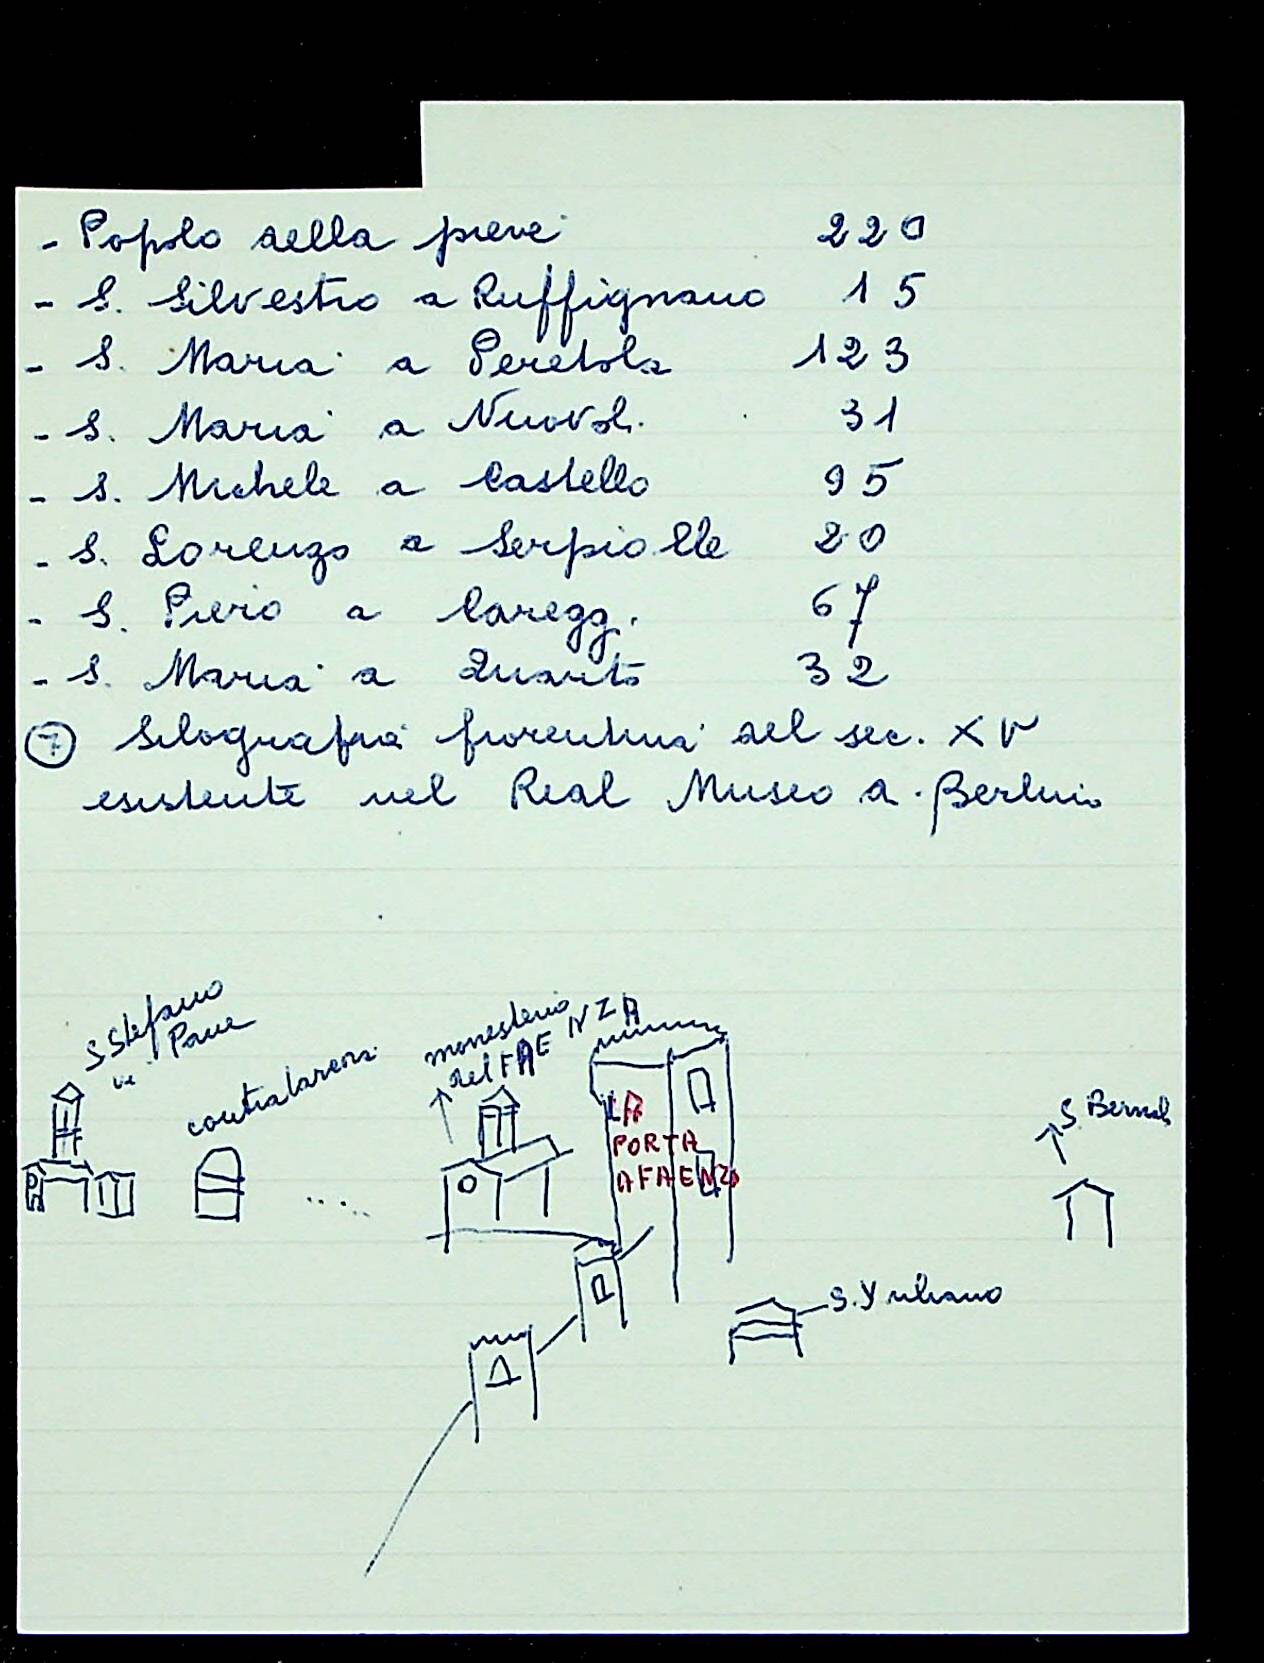 - Popolo della pieve 220
- S. Silvestro a Ruffignano 15
- S. Maria a Peretola 123
- S. Maria a Nuovoli. 31
- S. Michele a Castello 95
- S. Lorenzo a Serpiolle 20
- S. Piero a Caregg. 67
- S. Maria a Quarto 32
7 Silografia fiorentina del sec. XV
esistente nel Real Museo a Berlino
S Stefano
in Pane
monesterio
del FAENZA
LA
PORTA
AFAENZA
S. Bernab
S. Yuliano